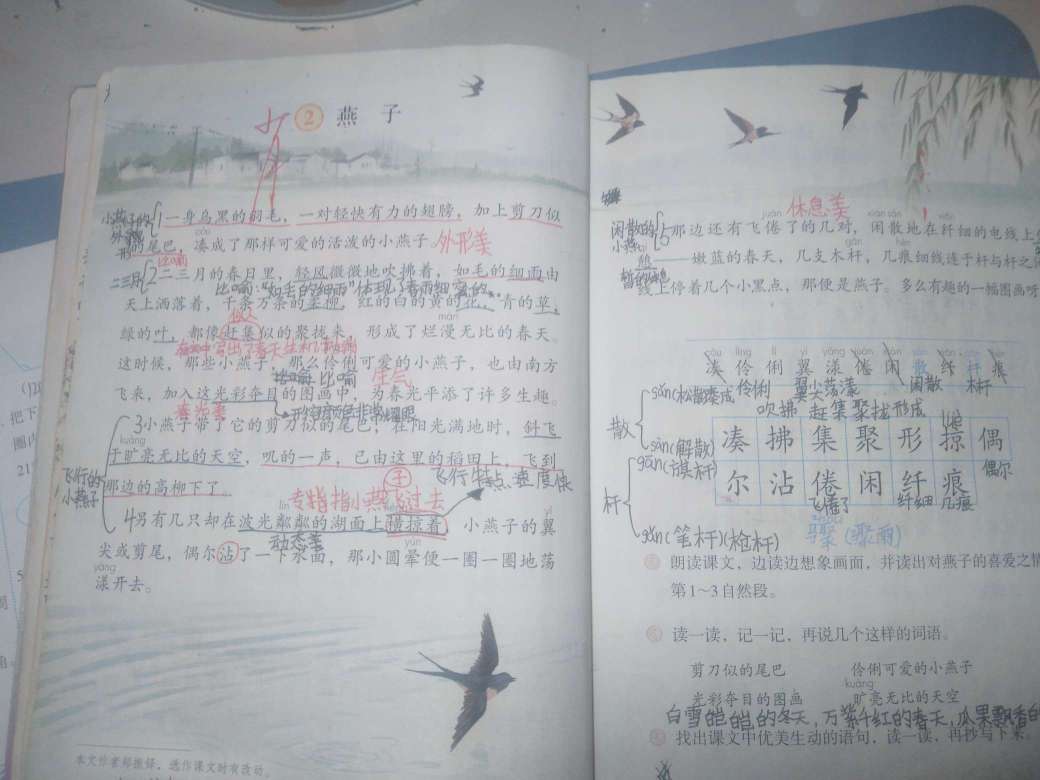 2 燕子
小燕子的
外形
1一身乌黑的羽毛，一对轻快有力的翅膀，加上剪刀似
的尾巴，凑成了那样可爱的活泼的小燕子。
外形美
比喻
二三月
2二三月的春日里，轻风微微地吹拂着，如毛的细雨由
天上洒落着，千条万条的柔柳，红的白的黄的花，青的草，
绿的叶，都像赶集似的聚拢来，形成了烂漫无比的春天。
màn
这时候，那些小燕子，那么伶俐可爱的小燕子，也由南方
比喻
生气
飞来，加入这光彩夺目的图画中，为春光平添了许多生趣。
3小燕子带了它的剪刀似的尾巴，在阳光满地时，斜飞
kuàng
于旷亮无比的天空，叽的一声，已由这里的稻田上，飞到
飞行的
小燕子
那边的高柳下了。
飞行特点 速度快
专指小燕飞过去
lín
4另有几只却在波光粼粼的湖面上横掠着，小燕子的翼
动态美
yùn
yì
尖或剪尾，偶尔沾了一下水面，那小圆晕便一圈一圈地荡
yàng
漾开去。
本文作者郑振铎，选作课文时有改动。
休息美
闲散的
小燕
juàn
xián sǎn
xiān
5那边还有飞倦了的几对，闲散地在纤细的电线上
gān
hén
——嫩蓝的春天，几支木杆，几痕细线连于杆与杆之
线上停着几个小黑点，那便是燕子。多么有趣的一幅图画呀
còu líng lì yì yàng juàn xián sǎn xiān gān hén
凑 伶 俐 翼 漾 倦 闲 散 纤 杆 痕
伶俐 翼尖 荡漾 闲散 木杆
吹拂 赶集 聚拢 形成
散
sǎn(松散)
sàn(解散)
凑 拂 集 聚 形 掠 偶
尔 沾 倦 闲 纤 痕
偶尔
飞倦了 纤细 几痕
杆
gān(旗杆)
gǎn(笔杆)(枪杆)
zhòu
骤(骤雨)
朗读课文，边读边想象画面，并读出对燕子的喜爱之情
第1~3自然段。
读一读，记一记，再说几个这样的词语。
剪刀似的尾巴 伶俐可爱的小燕子
kuàng
光彩夺目的图画 旷亮无比的天空
白雪皑皑的冬天，万紫千红的春天，瓜果飘香的
找出课文中优美生动的语句，读一读，再抄写下来。